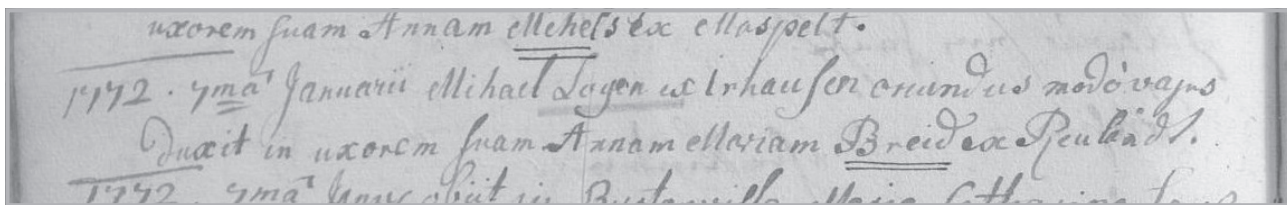 uxorem suam Annam Mehels ex Maspelt.
1772. 7ma Januarii Mihael Loyen ex Irhausen oriundus modo vagus
Duxit in uxorem suam Annam Mariam Breid ex Reulandt.
1772. 7ma obiit in Maria Catharina